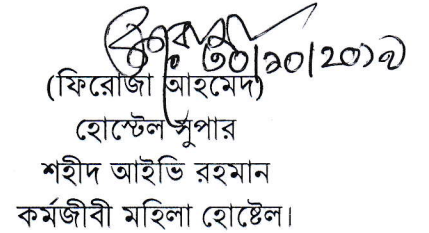 ৩০/১০/২০১৭
(ফিরোজা আহমেদ)
হোস্টেল সুপার
শহীদ আইভি রহমান
কর্মজীবী মহিলা হোষ্টেল।